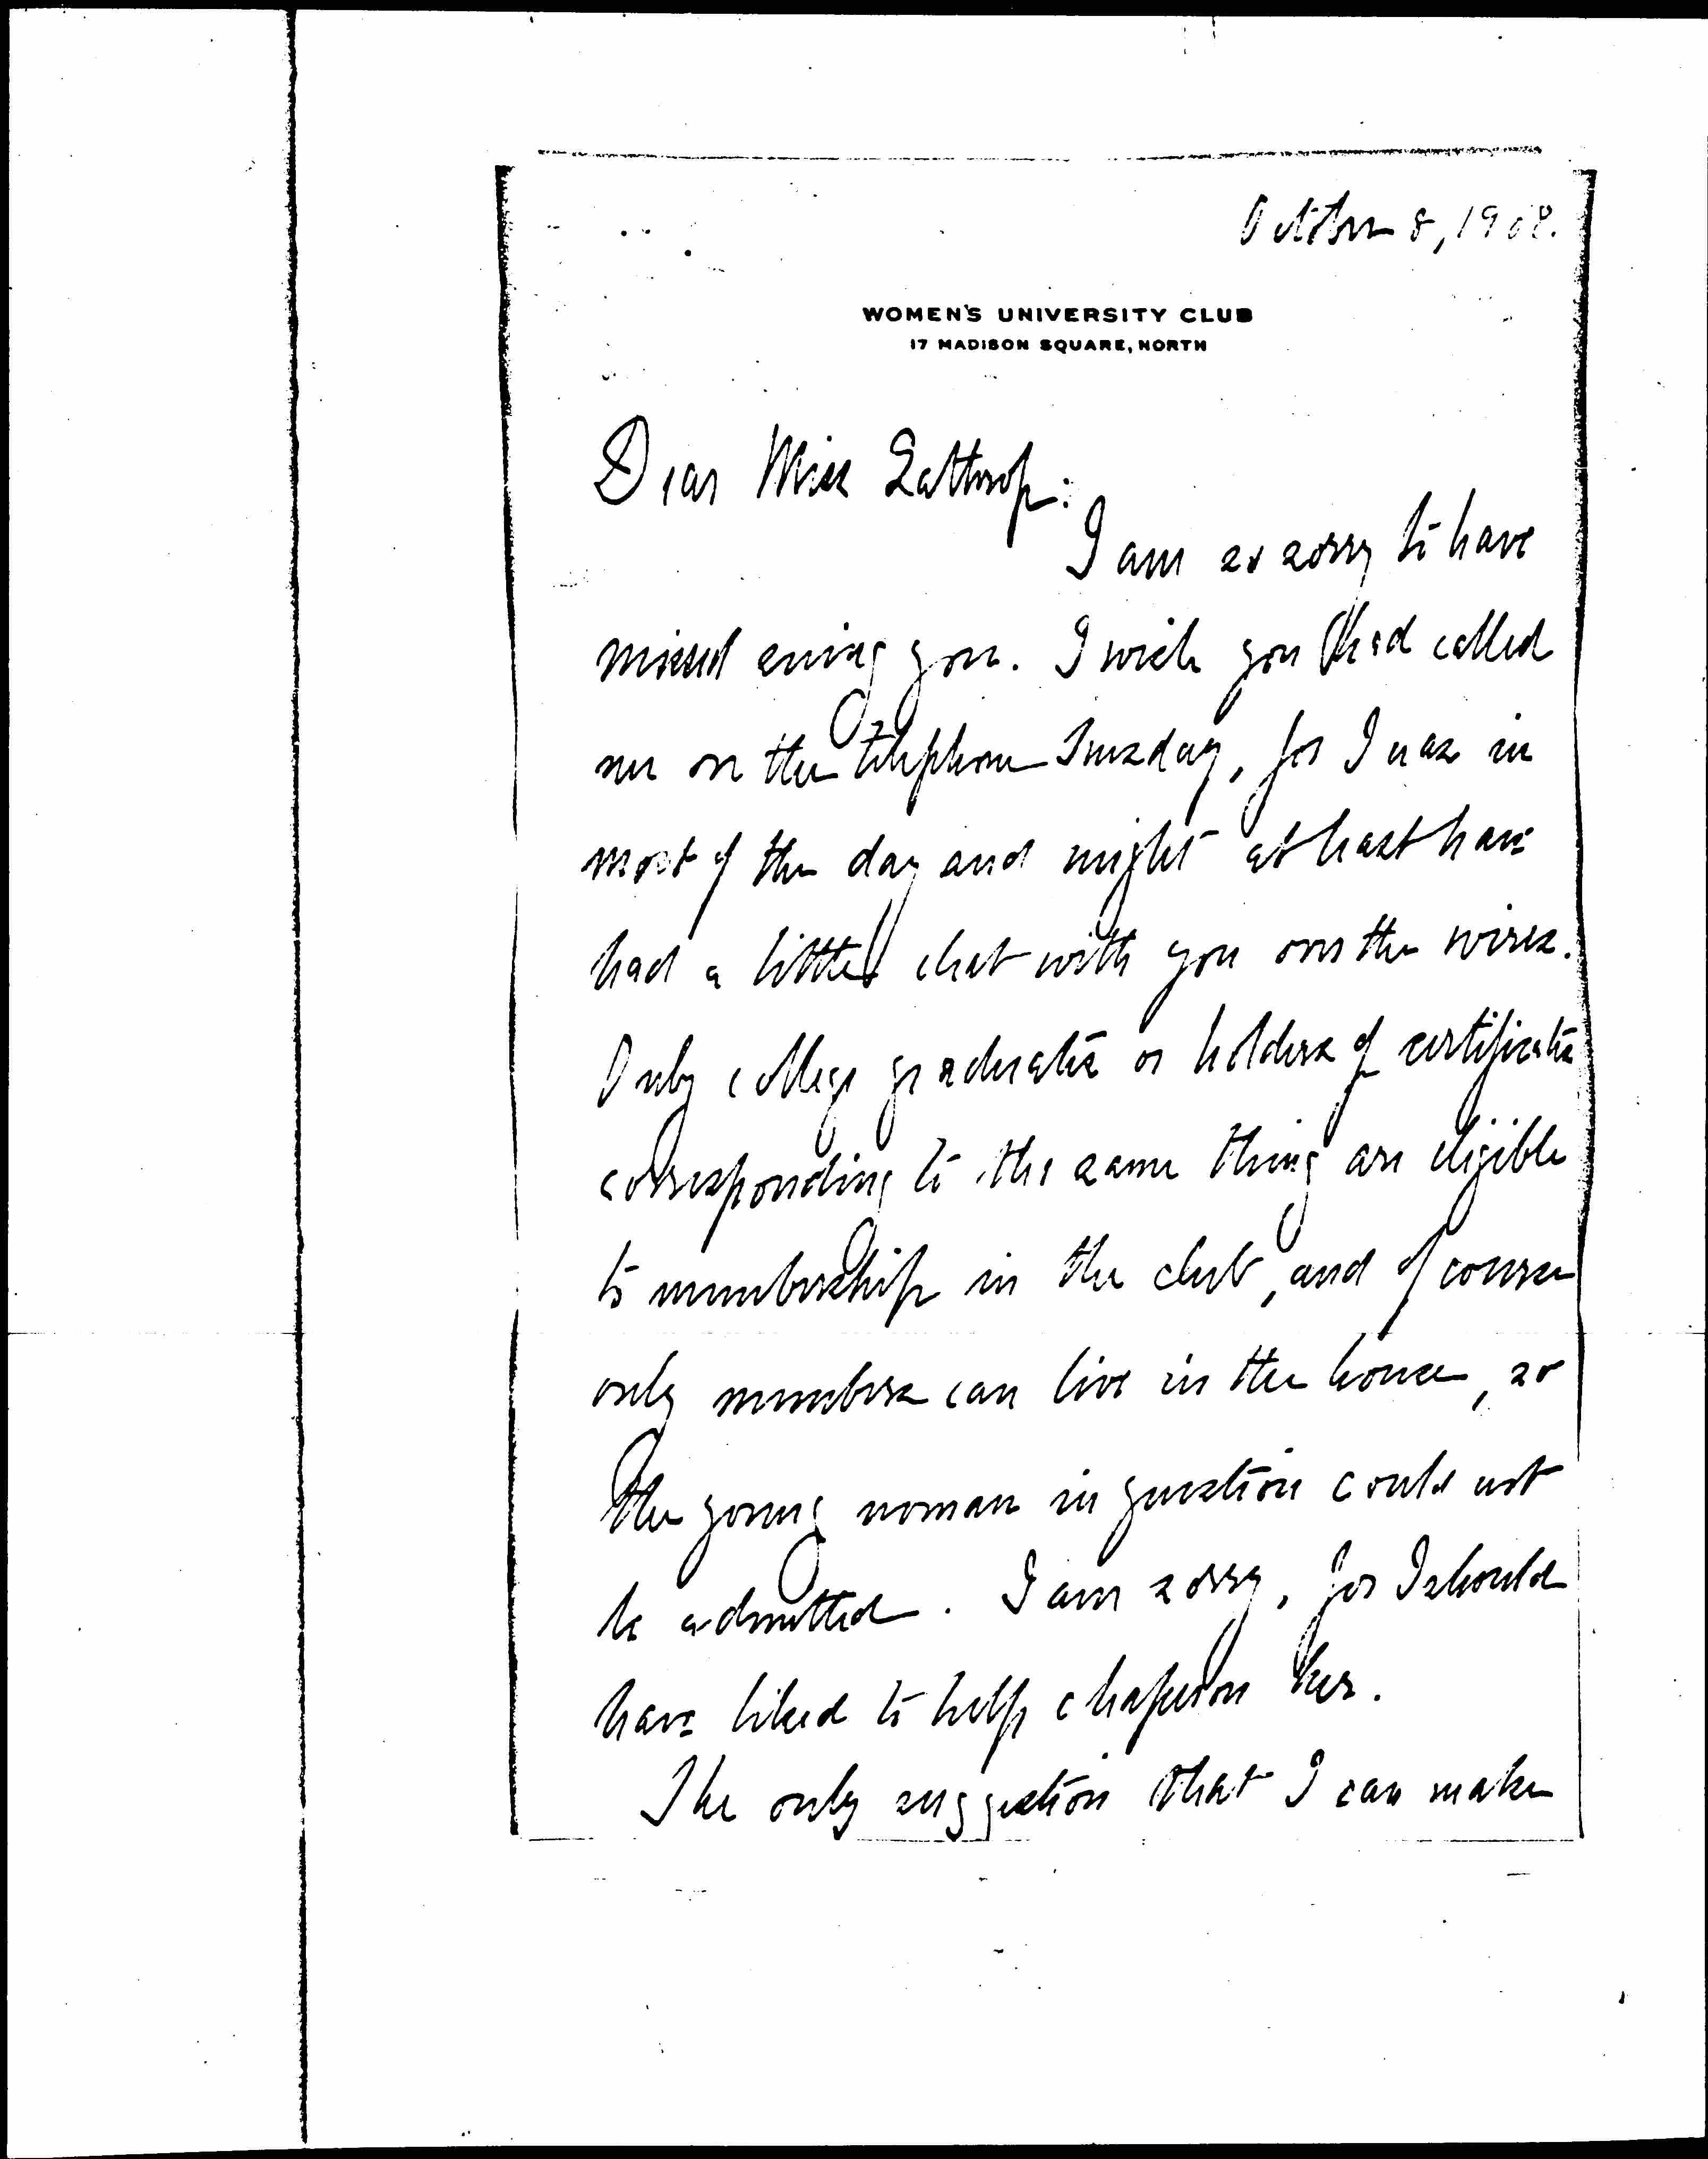 October 8, 1908.
WOMEN'S UNIVERSITY CLUB
17 MADISON SQUARE, NORTH
Dear Miss Lathrop:
I am so sorry to have
missed seeing you. I wish you had called
me on the telephone Tuesday, for I was in
most of the day and might at least have
had a little chat with you over the wires.
Only college graduates or holders of certificates
corresponding to the same thing are eligible
to membership in the club, and of course
only members can live in the house, so
the young woman in question could not
be admitted. I am sorry, for I should
have liked to help chaperon her.
The only suggestion that I can make